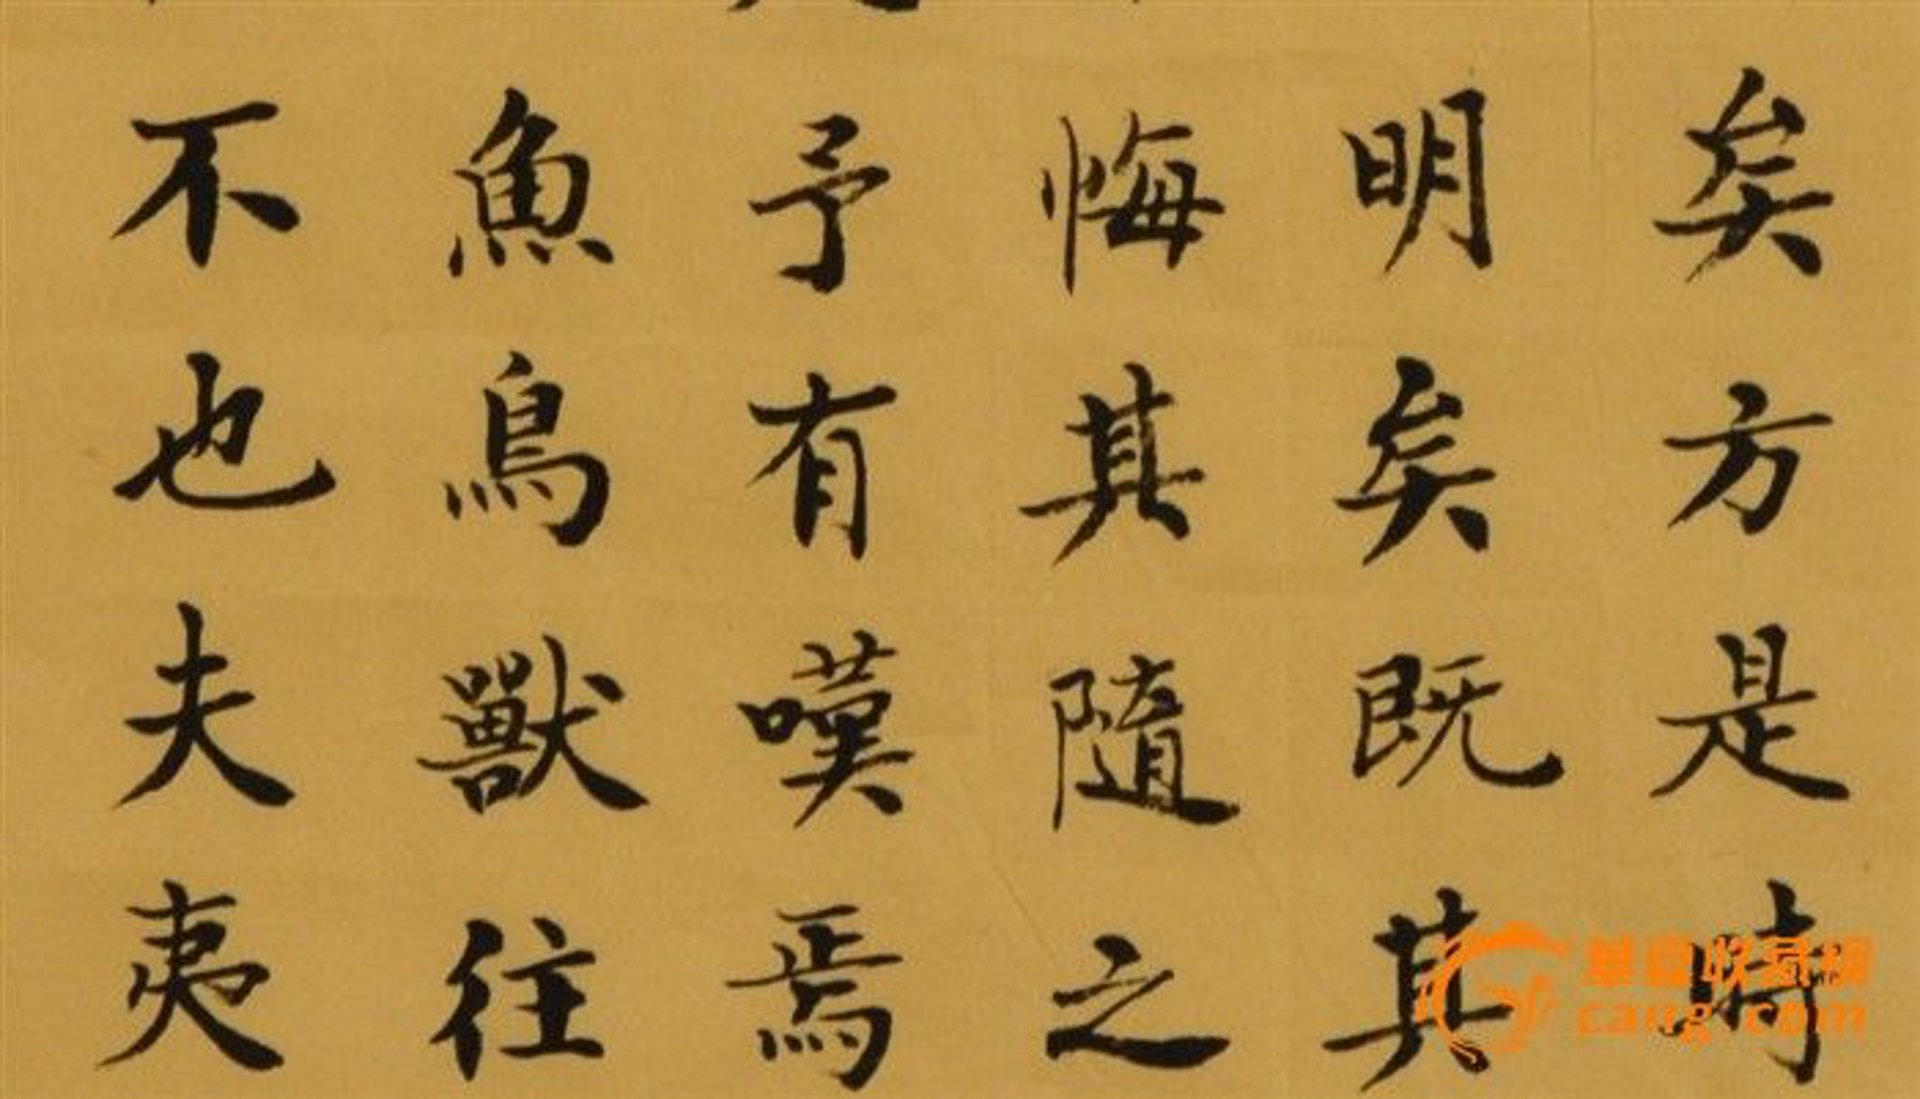 矣方是時
明矣既其
悔其隨之
予有嘆焉
魚鳥獸往
不也夫夷
cang.com